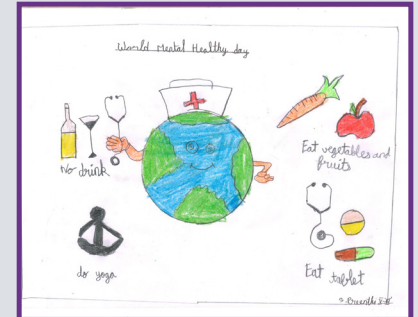 World Mental Healthy day
No drink
Eat vegetables and
fruits
do yoga
Eat tablet